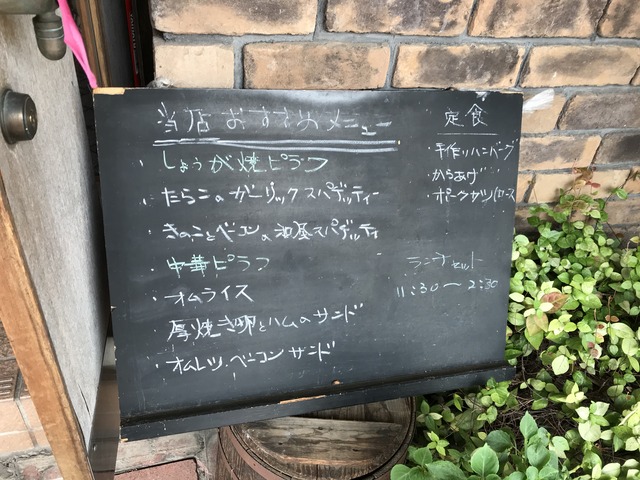 当店おすすめメニュー
・しょうが焼ピラフ
・たらこのガーリックスパゲッティー
・きのことベーコンの和風スパゲッティ
・中華ピラフ
・オムライス
厚焼き卵とハムのサンド
・オムレツ.ベーコンサンド
定食
・手作りハンバーグ
・からあげ
・ポークカツ(ロース
ランチセット
11:30〜2:30